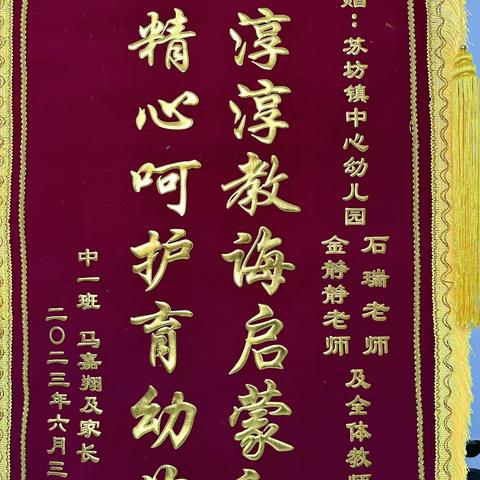 赠：苏坊镇中心幼儿园
石瑞老师
金静静老师
及全体教师
淳淳教诲启蒙
精心呵护育幼
中一班 马嘉翔及家长
二〇二三年六月三